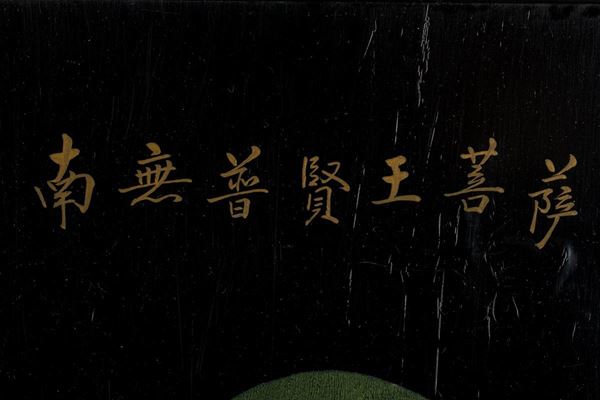 南無普賢王菩薩